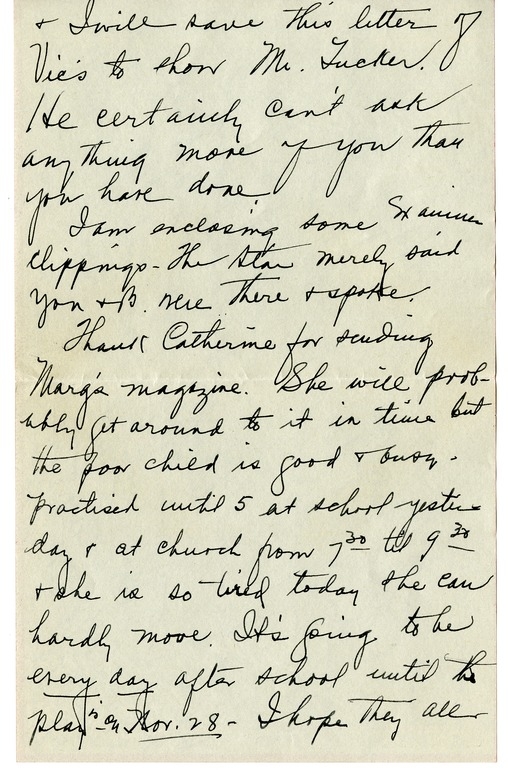 & I will save this letter of
Vic's to show Mr. Tucker.
He certainly can't ask
anything more of you than
you have done.
I am enclosing some Examiner
clippings - The Star merely said
you & B. were there & spoke.
Thank Catherine for sending
Marg's magazine. She will prob-
ably get around to it in time but
the poor child is good & busy -
Practised until 5 at school yester-
day & at church from 7 30 till 9 30
& she is so tired today she can
hardly move. It's going to be
every day after school until the
play's on Nov. 28 - I hope they all